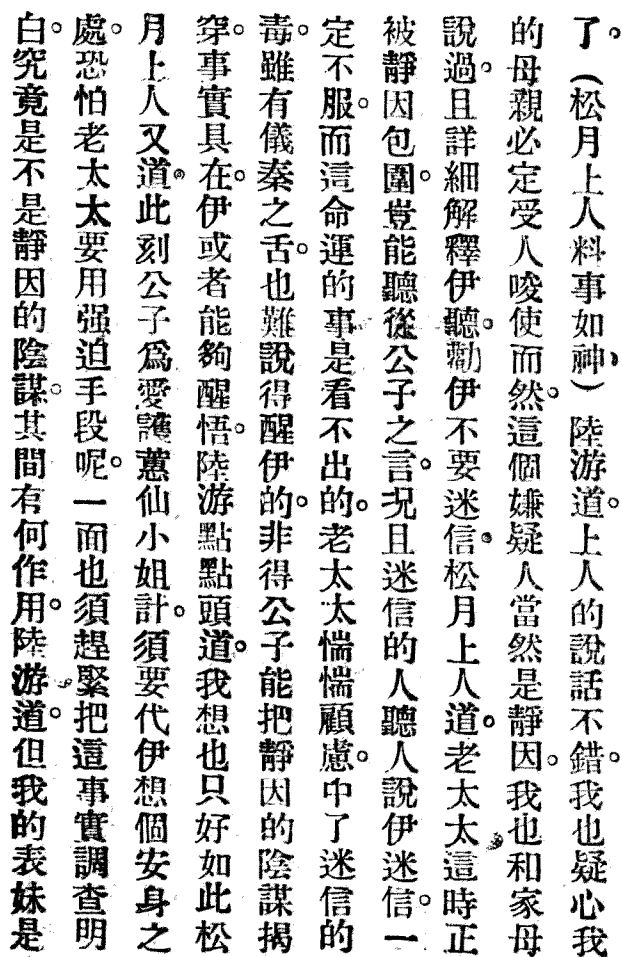 了。(松月上人料事如神)陸游道。上人的說話不錯。我也疑心我
的母親必定受人唆使而然。這個嫌疑人當然是靜因。我也和家母
說過。且詳細解釋伊聽。勸伊不要迷信。松月上人道。老太太這時正
被靜因包圍。豈能聽從公子之言。况且迷信的人聽人說伊迷信。一
定不服。而這命運的事是看不出的。老太太惴惴顧慮。中了迷信的
毒。雖有儀秦之舌。也難說得醒伊的。非得公子能把靜因的陰謀揭
穿。事實具在。伊或者能夠醒悟。陸游點點頭道。我想也只好如此松
月上人又道。此刻公子爲愛護蕙仙小姐計。須要代伊想個安身之
處。恐怕老太太要用强迫手段呢。一面也須趕緊把這事實調查明
白。究竟是不是靜因的陰謀。其間有何作用。陸游道。但我的表妹是